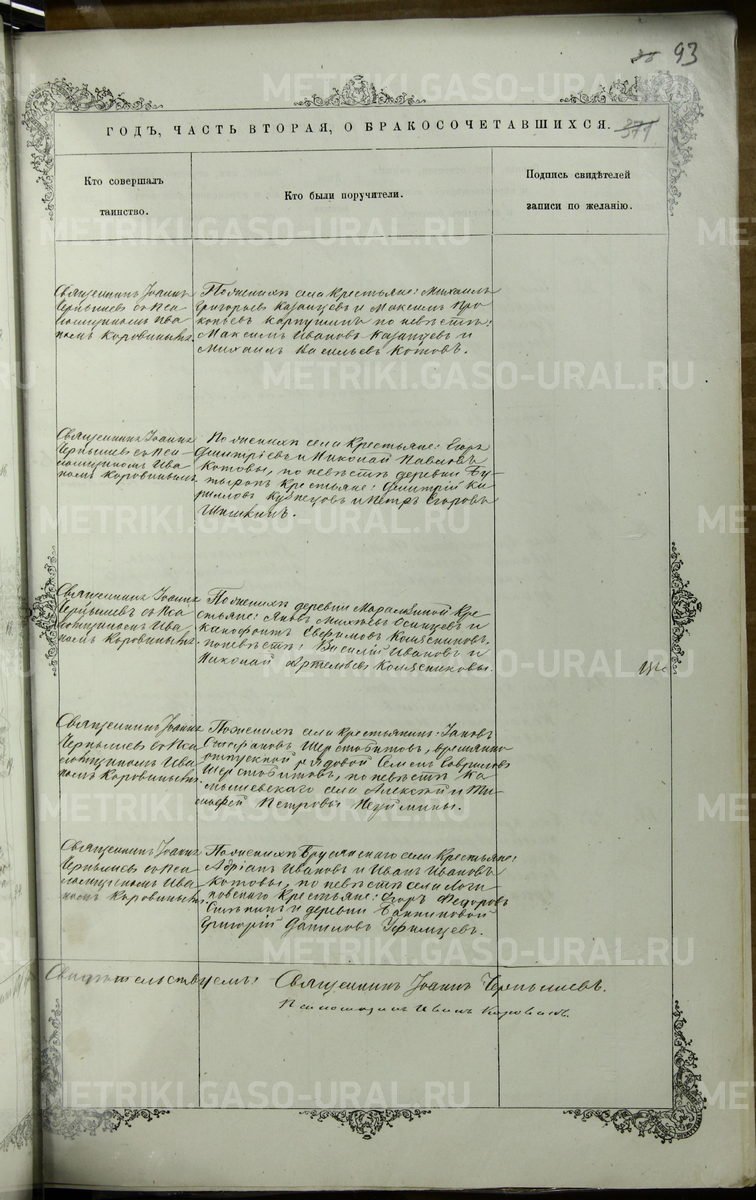 93
ГОДЪ, ЧАСТЬ ВТОРАЯ, О БРАКОСОЧЕТАВШИХСЯ.
371
Кто совершалъ
таинство.
Кто были поручители.
Подпись свидѣтелей
записи по желанію.
Священникъ Іоаннъ
Чернышевъ съ Пса
ломщикомъ Ива
номъ Коровинымъ.
По женихѣ села крестьяне: Михаилъ
Григорьевъ Казанцевъ и Максимъ Про
копьевъ по невѣстѣ:
Максимъ Ивановъ Казанцевъ и
Михаилъ Васильевъ Котовъ.
Священникъ Іоаннъ
Чернышевъ съ Пса
ломщикомъ Ива
номъ Коровинымъ
По женихѣ села крестьяне: Егоръ
Дмитріевъ и Николай Павловъ
Котовы, по невѣстѣ деревни Бу
крестьяне: Дмитрій Ки
рилловъ Кузнецовъ и Петръ Егоровъ
Шишкинъ.
Священникъ Іоаннъ
Чернышевъ съ Пса
ломщикомъ Ива
номъ Коровинымъ.
По женихѣ деревни кре
стьяне: Осинцевъ и
Евфимовъ Колясниковъ,
по невѣстѣ: Василій Ивановъ и
Николай Артемьевъ Колясниковы.
Священникъ Іоаннъ
Чернышевъ съ Пса
ломщикомъ Ива
номъ Коровинымъ
По женихѣ села крестьянинъ: Іаковъ
Стефановъ Шерстобитовъ, временно
отпускной рядовой Семенъ Гавриловъ
Шерстобитовъ, по невѣстѣ Ка
мышевскаго села Алексѣй и Ти
моѳей Петровы
Священникъ Іоаннъ
Чернышевъ съ Пса
ломщикомъ Ива
номъ Коровинымъ
По женихѣ Бруснянскаго села крестьяне:
Адріанъ Ивановъ и Иванъ Ивановъ
Котовы, по невѣстѣ села Логи
новскаго крестьяне: Егоръ Федоровъ
и деревни
Григорій Даниловъ Уфимцевъ.
Свидѣтельствуемъ: Священникъ Іоаннъ Чернышевъ.
Псаломщикъ Иванъ Коровинъ.
METRIKI.GASO-URAL.RU
METRIKI.GASO-URAL.RU
METRIKI.GASO-URAL.RU
METRIKI.GASO-URAL.RU
METRIKI.GASO-URAL.RU
METRIKI.GASO-URAL.RU
METRIKI.GASO-URAL.RU
METRIKI.GASO-URAL.RU